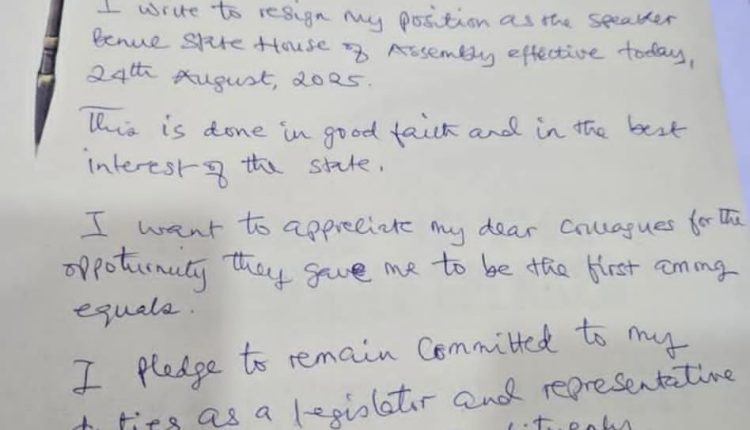 I write to resign my position as the speaker
Benue State House of Assembly effective today,
24th August, 2025.
This is done in good faith and in the best
interest of the state.
I want to appreciate my dear colleagues for the
oppoturnuity they gave me to be the first among
equals.
I pledge to remain committed to my
duties as a legislator and representative